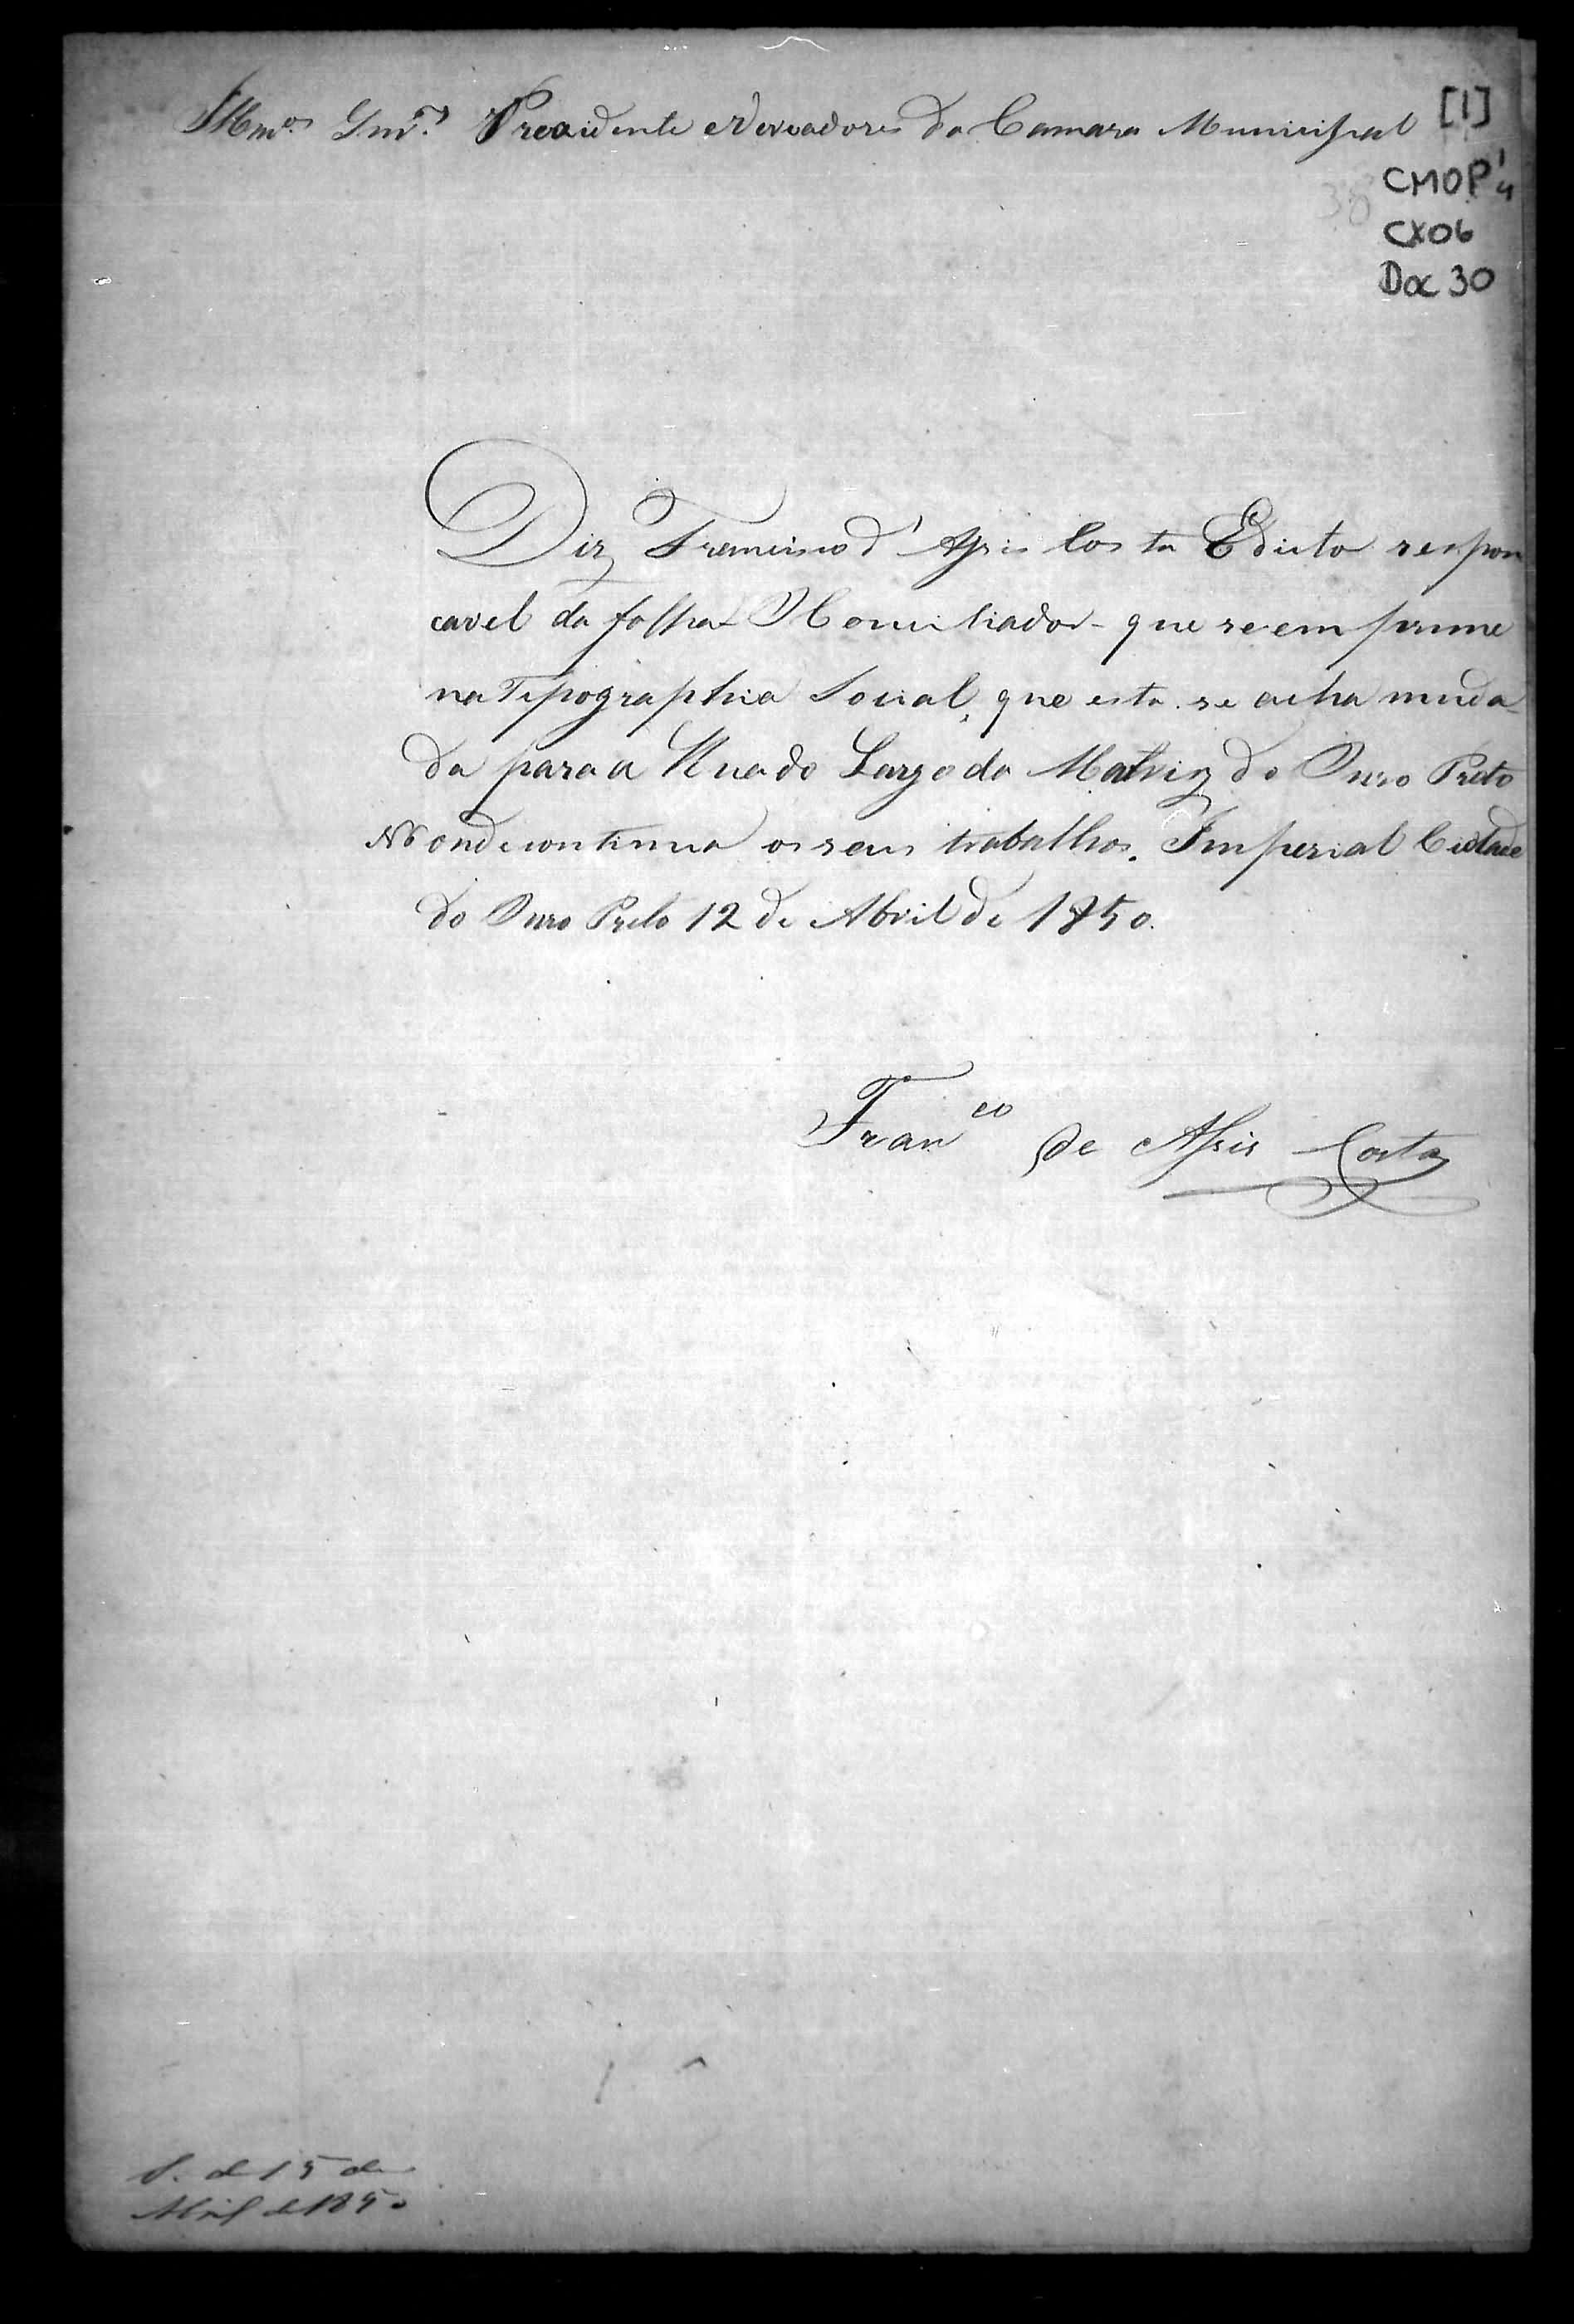 Illmos Snrs Presidente e Vereadores da Camara Municipal
[1]
CMOP 1/4
CX06
Doc 30
Diz Francisco d'Assis Costa Edicto respon
cavel da folha O Conciliador - que se emprime
na Tipographia Social, que esta se acha muda-
da para a Rua do Largo da Matriz do Ouro Preto
N 6 onde continua os seus trabalhos. Imperial Cidade
do Ouro Preto 12 de Abril de 1850.
Franco de Assis Costa
S. de 15 de
Abril de 1850